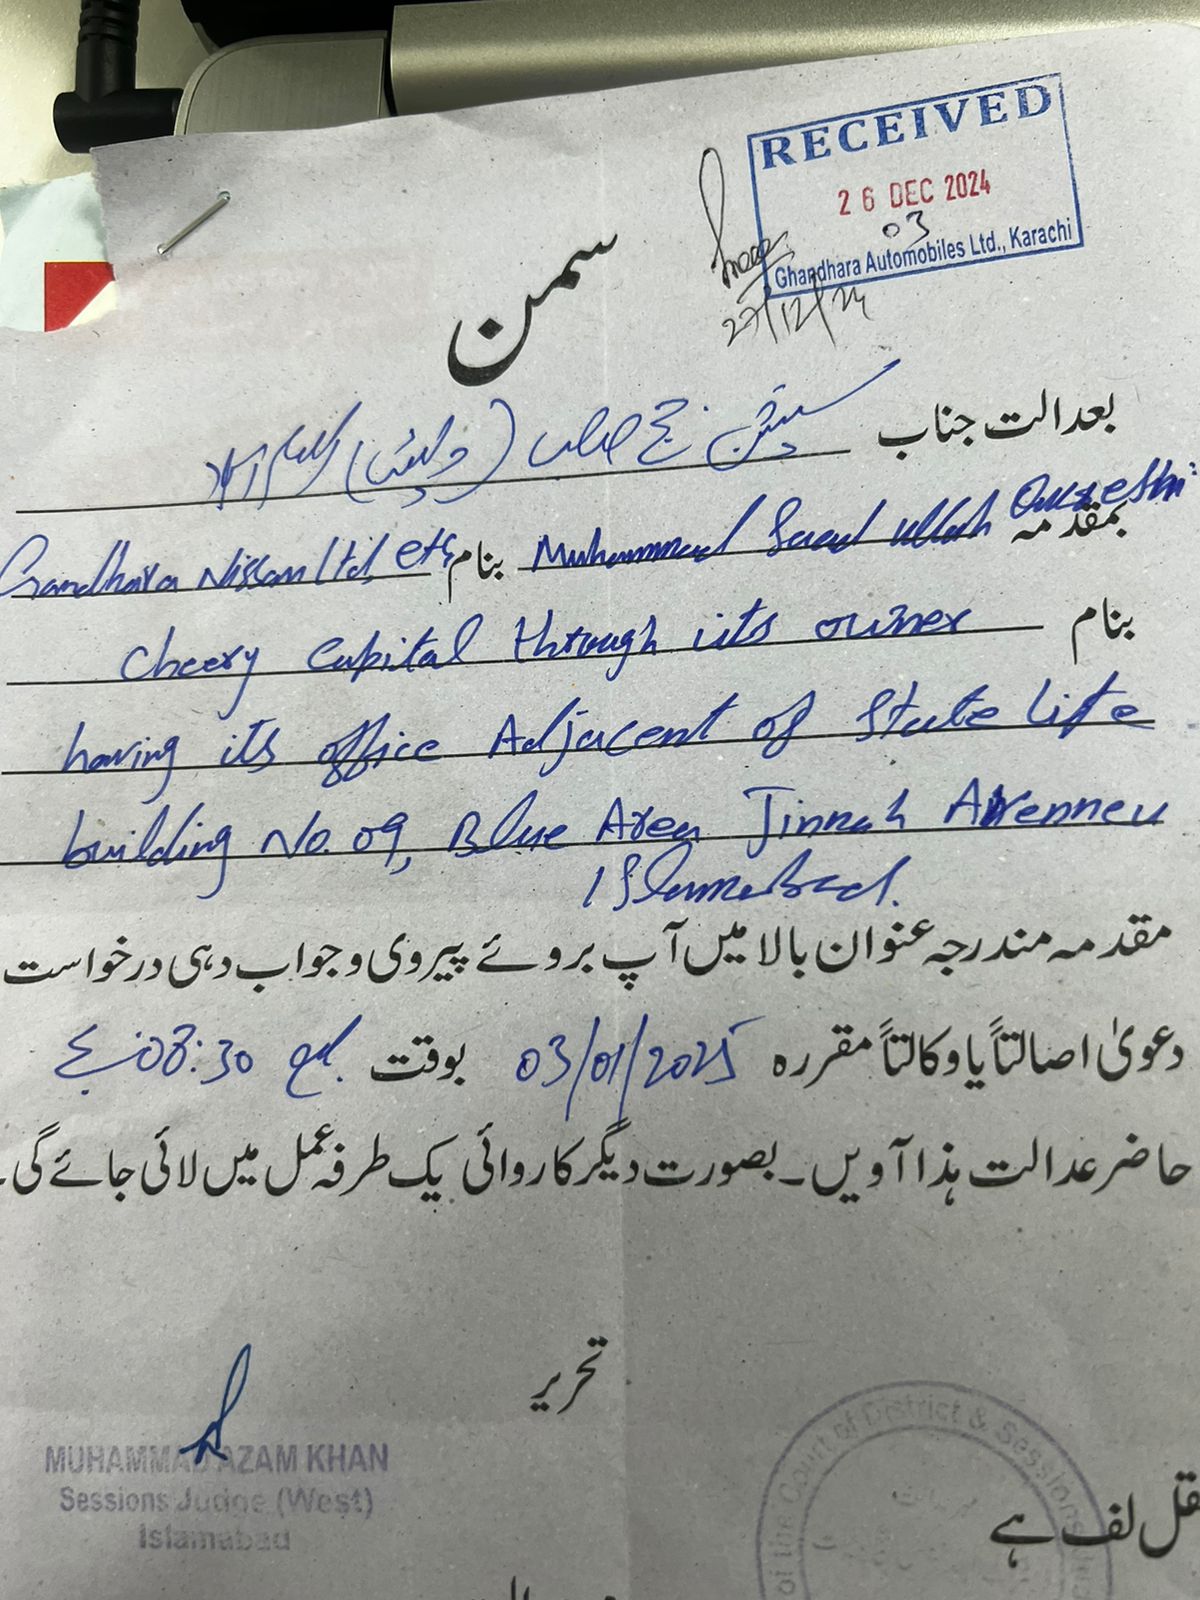 RECEIVED
26 DEC 2024
03
Ghandhara Automobiles Ltd., Karachi
27/12/24
سمن
بعدالت جناب سیشن جج صاحب (ویسٹ) اسلام آباد
بمقدمہ Muhammad Saad ullah Qureshi بنام Gandhara Nissan Ltd, etc
بنام Cheery Capital through its owner
having its office Adjacent of State Life
building No. 09, Blue Area Jinnah Avenneu
Islamabad.
مقدمہ مندرجہ عنوان بالا میں آپ بروئے پیروی و جواب دہی درخواست
دعویٰ اصالتاً یا وکالتاً مقررہ 03/01/2025 بوقت صبح 08:30 بجے
حاضر عدالت ہذا آویں۔ بصورت دیگر کاروائی یک طرفہ عمل میں لائی جائے گی۔
تحریر
MUHAMMAD AZAM KHAN
Sessions Judge (West)
Islamabad
of the Court of District & Sessions
نقل لف ہے